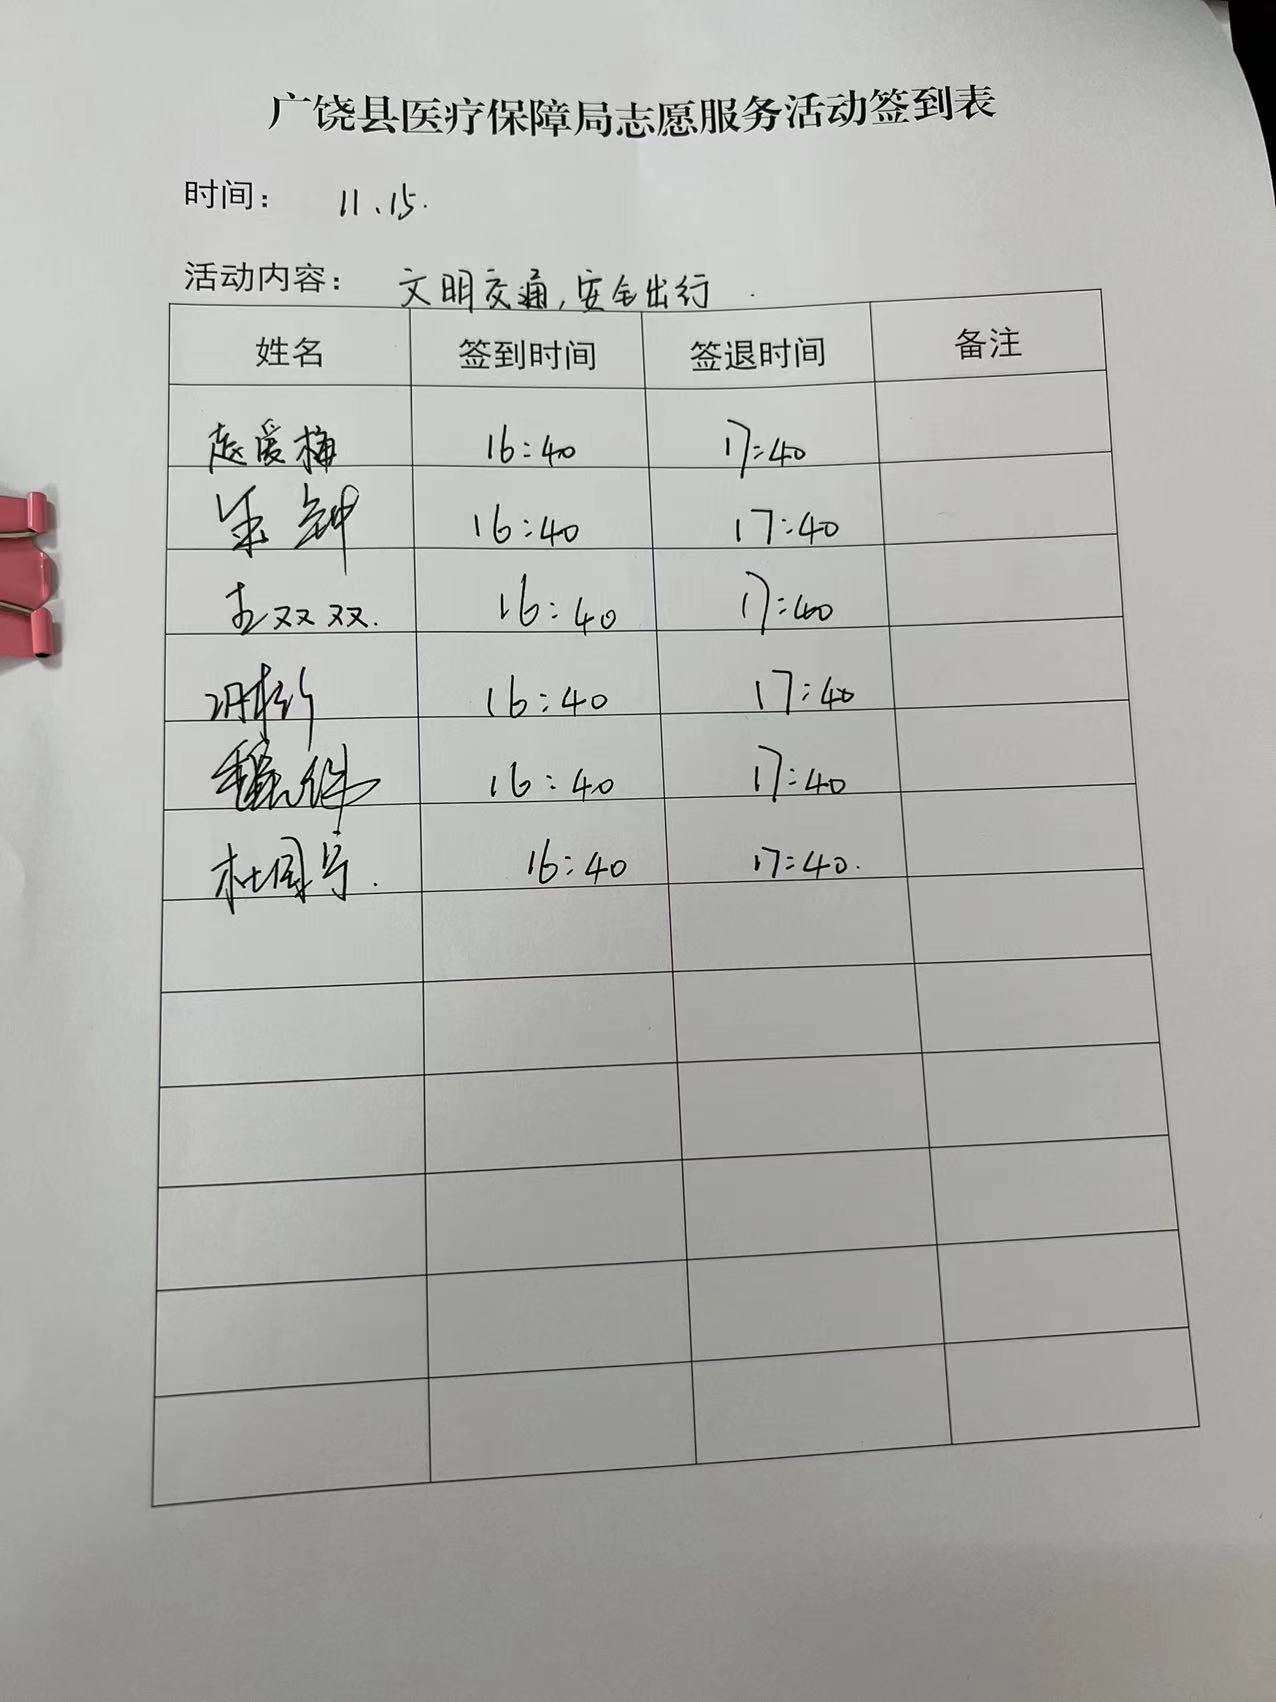 广饶县医疗保障局志愿服务活动签到表
时间： 11.15.
活动内容： 文明交通,安全出行
姓名 签到时间 签退时间 备注
赵爱梅 16:40 17:40
16:40 17:40
王双双. 16:40 17:40
16:40 17:40
16:40 17:40
杜国宁. 16:40 17:40.